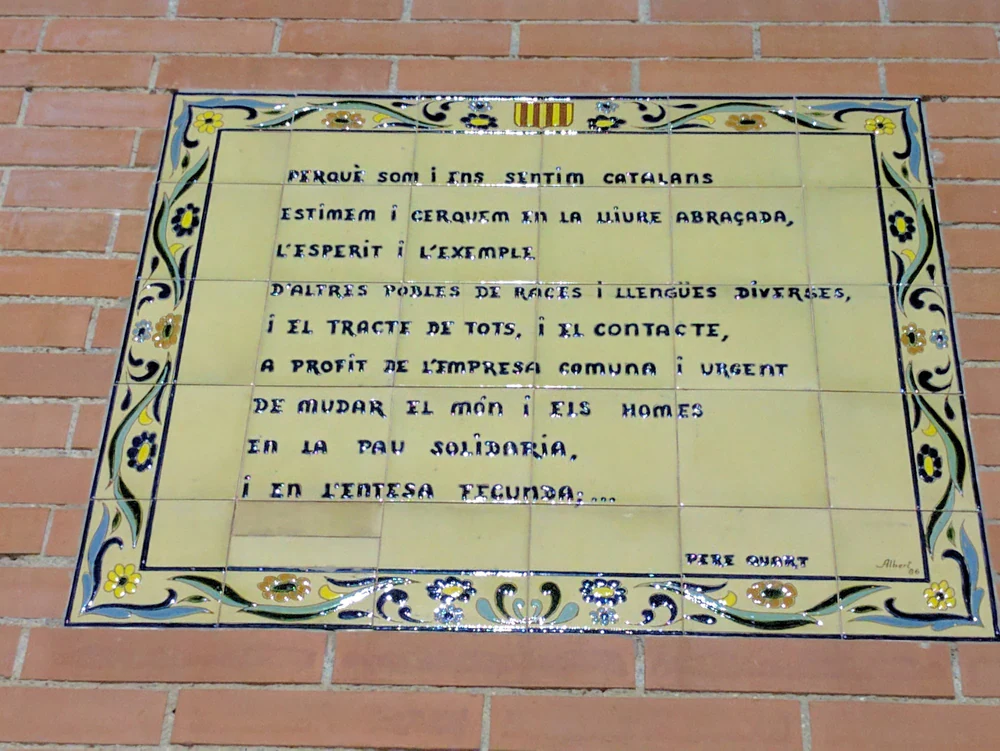 PERQUÈ SOM i ENS SENTIM CATALANS
ESTIMEM i CERQUEM EN LA LLIURE ABRAÇADA,
L'ESPERIT i L'EXEMPLE
D'ALTRES POBLES DE RACES i LLENGÜES DIVERSES,
i EL TRACTE DE TOTS, i EL CONTACTE,
A PROFIT DE L'EMPRESA COMUNA i URGENT
DE MUDAR EL MÓN i ELS HOMES
EN LA PAU SOLIDARIA,
i EN L'ENTESA FECUNDA;...
PERE QUART
Albert
86